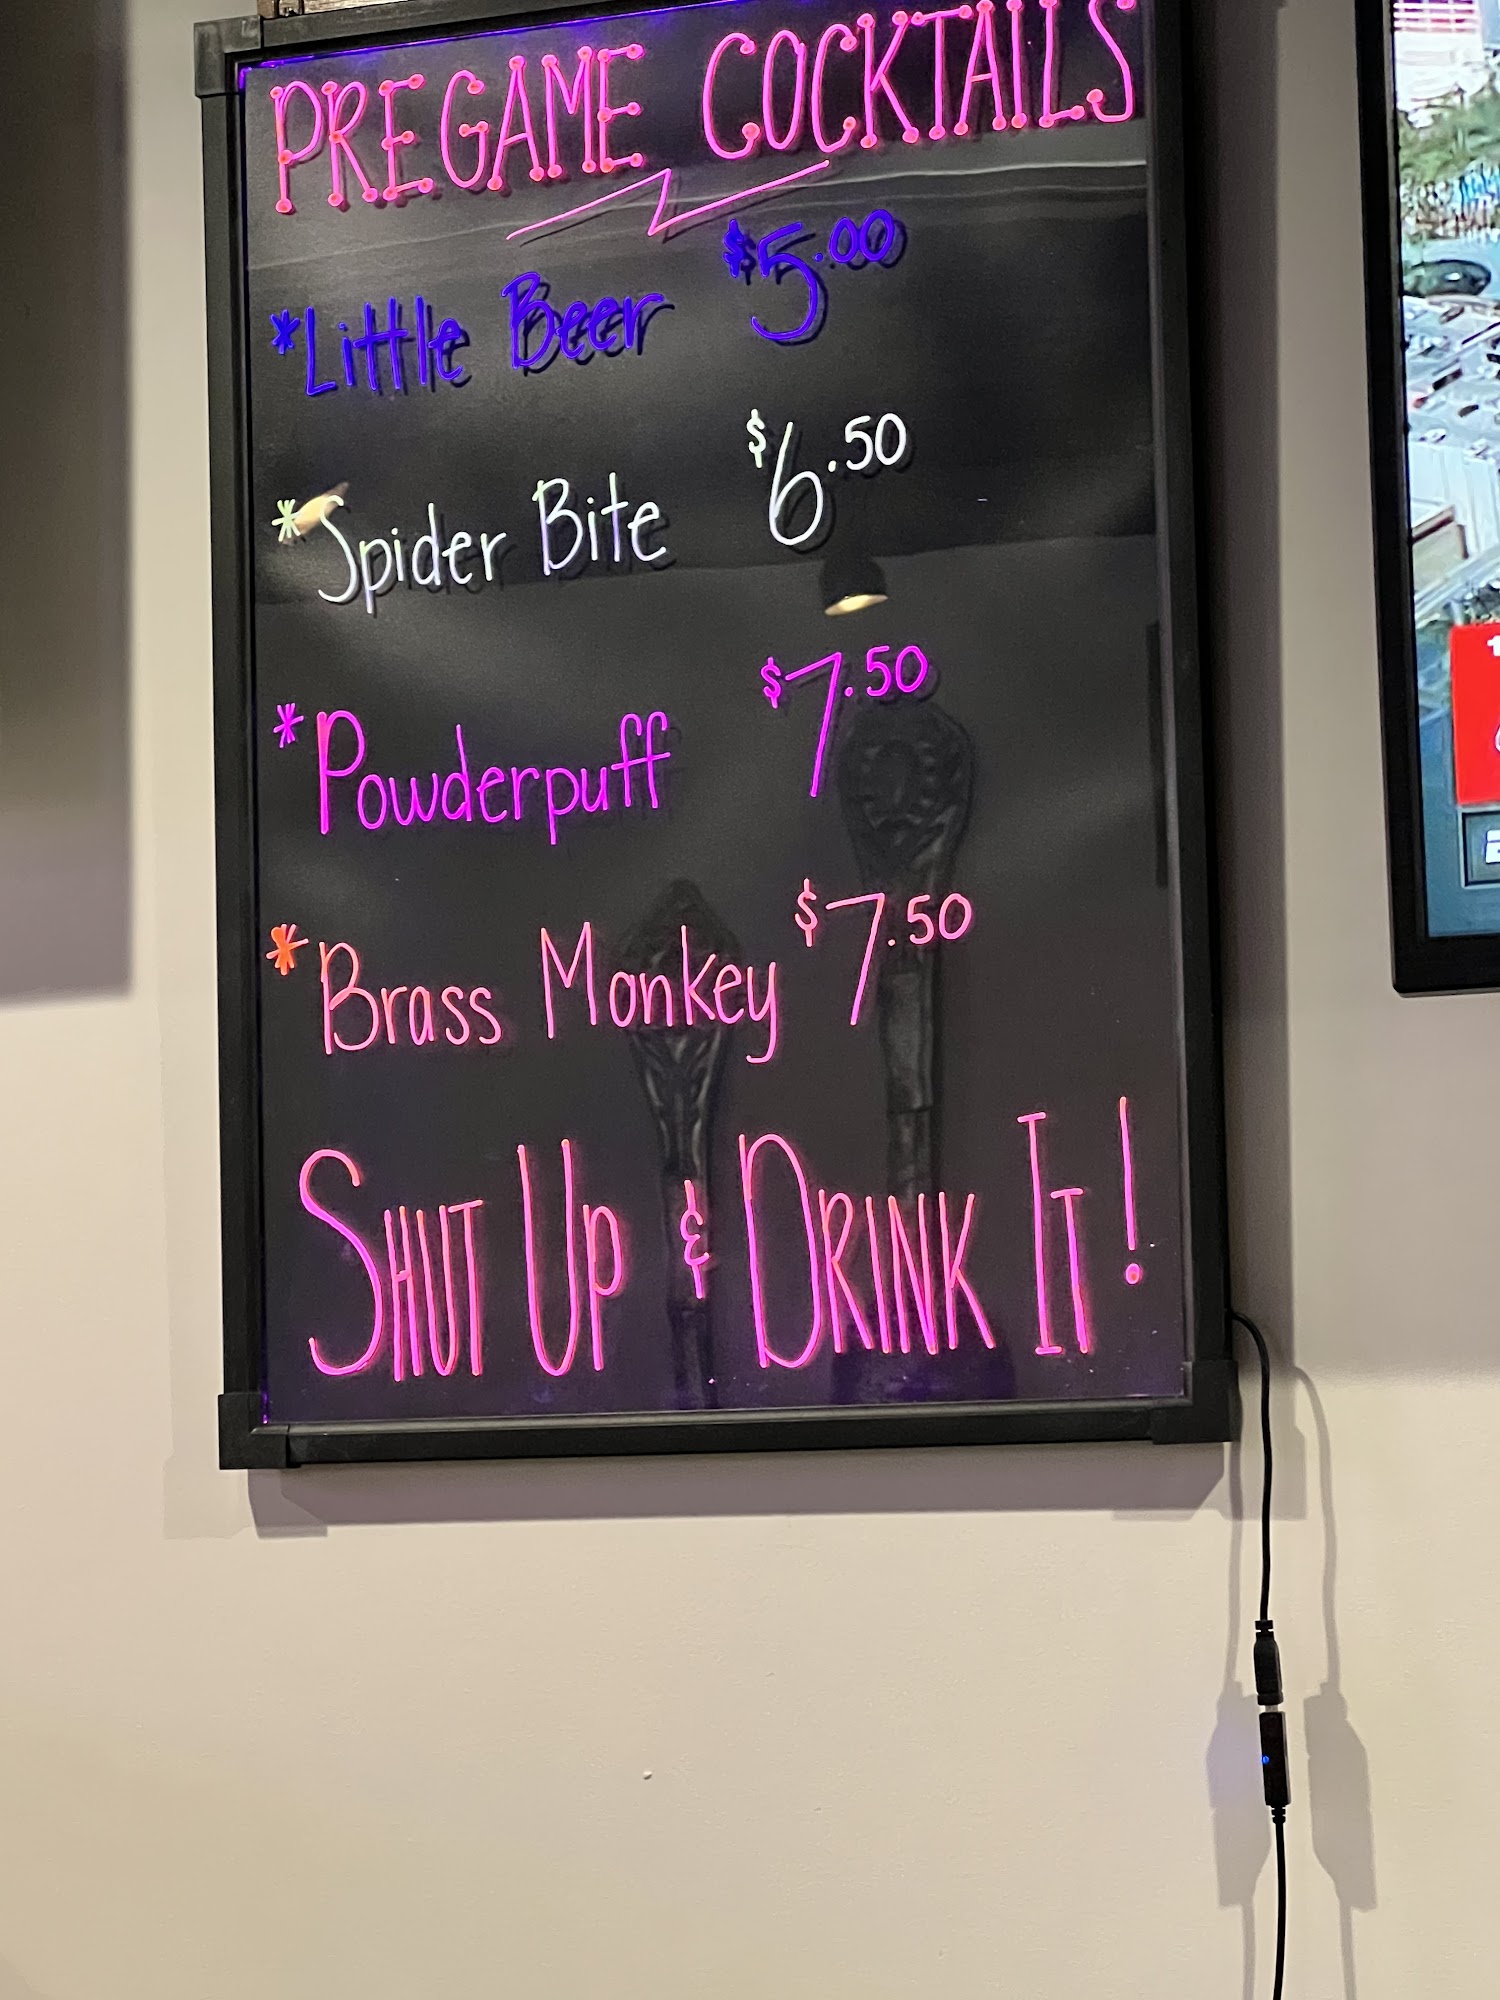 PREGAME COCKTAILS
*Little Beer $5.00
*Spider Bite $6.50
*Powderpuff $7.50
*Brass Monkey $7.50
SHUT UP & DRINK IT!